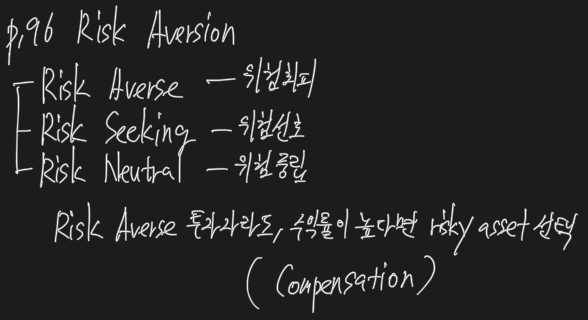 p.96 Risk Aversion
Risk Averse - 위험회피
Risk Seeking - 위험선호
Risk Neutral - 위험중립
Risk Averse 투자자라도, 수익률이 높다면 risky asset 선택
(Compensation)